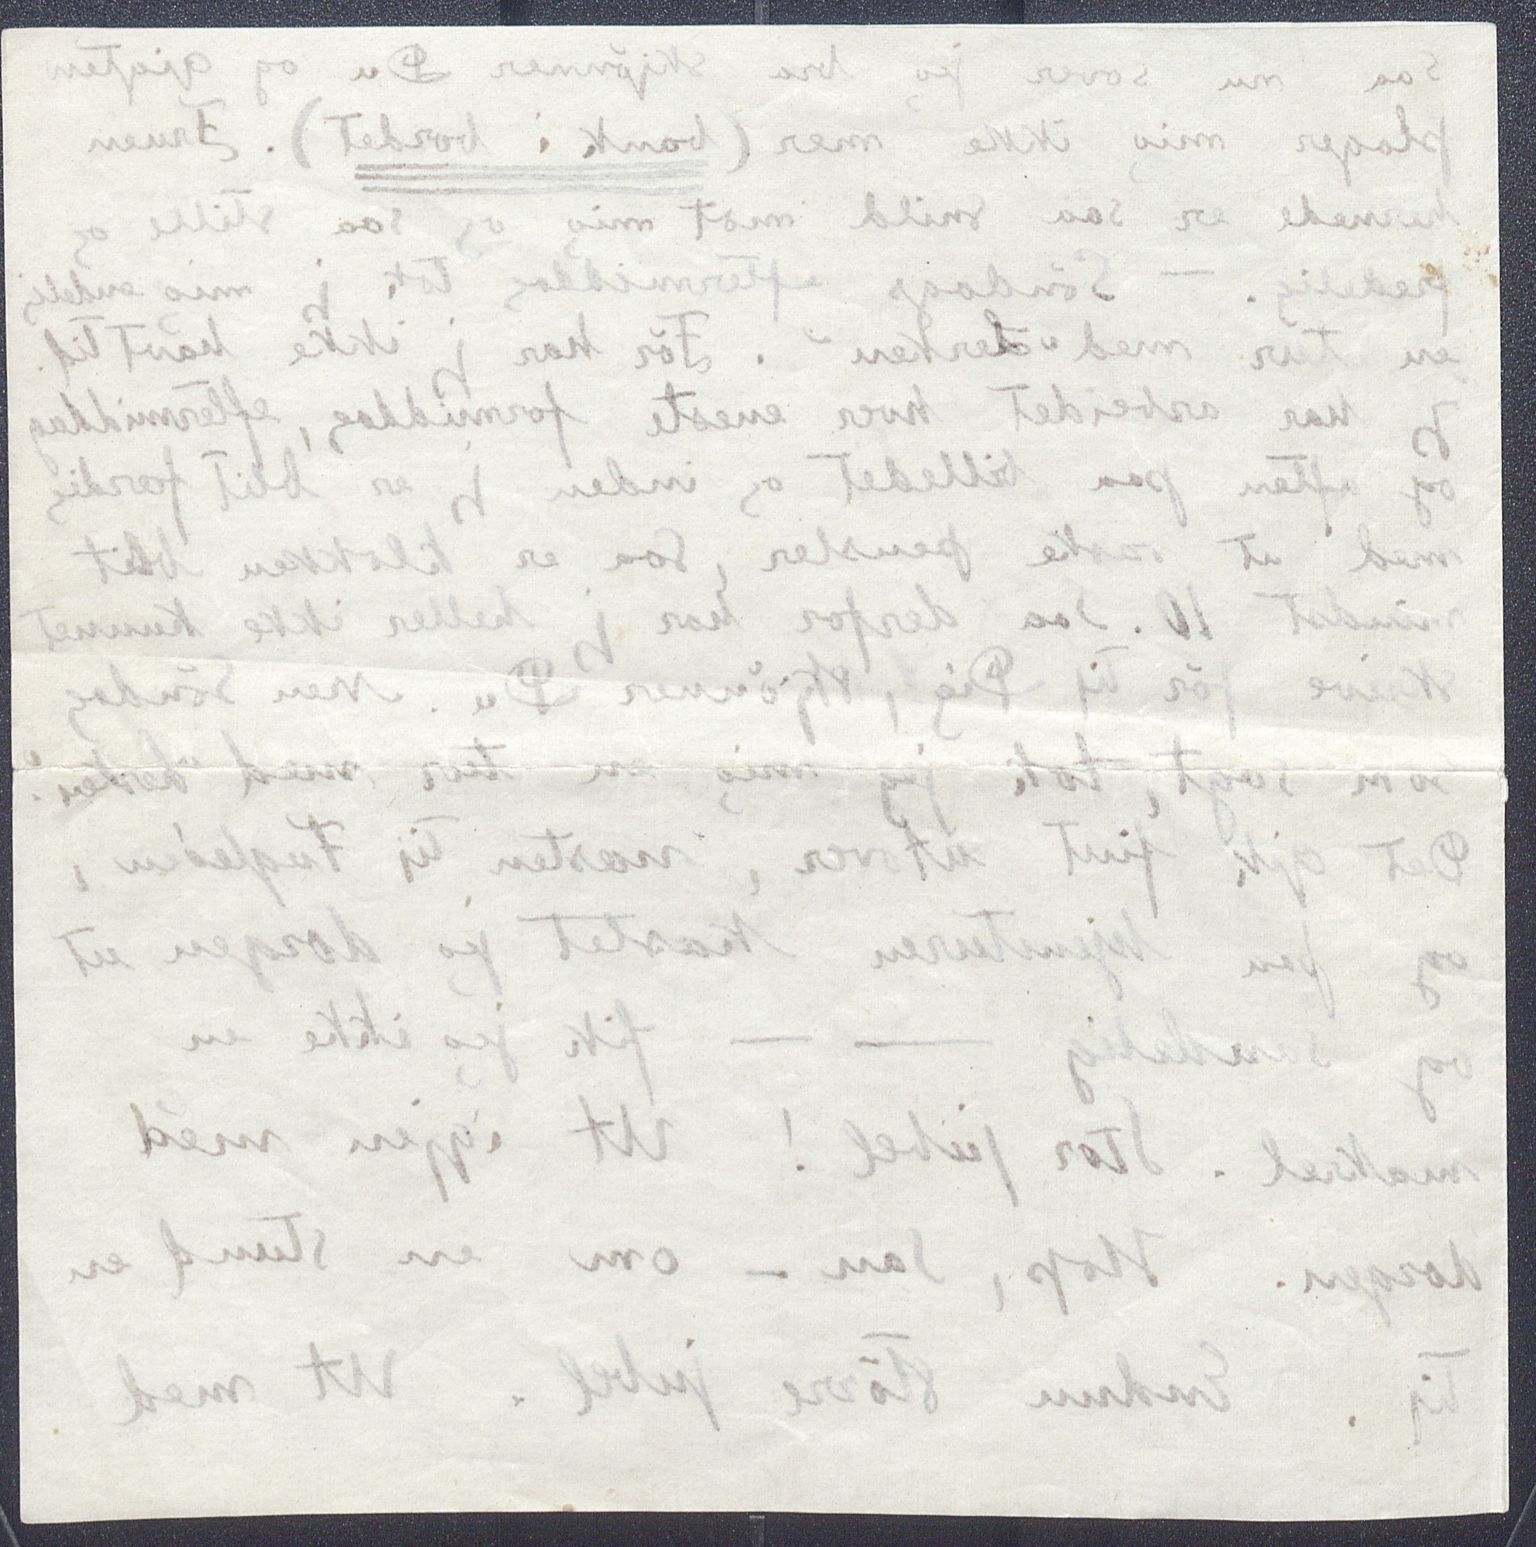 saa nu sover jeg bra skjønner Du og gigten
plager mig ikke mer (bank i bordet). Fruen
hernede er saa snild mot mig og saa stille og
fredelig. — Söndags eftermiddag tok j mig endelig
en tur med "terken". För har j ikke havt tid.
J har arbeidet hver eneste formiddag, eftermiddag
og aften paa billedet og inden j er blit færdig
med at vaske pensler, saa er klokken blit
mindst 10. Saa derfor har j heller ikke kunnet
skrive för til Dig, skjönner Du. Men Söndag
som sagt, tok jeg mig en tur med "terken".
Det gik fint utover, næsten til Fugleöen,
og paa hjemturen kastet jeg dorgen ut
og sandelig — — fik jeg ikke en
makrel. Stor jubel! Ut igjen med
dorgen. Hop, san — om en stund en
til. Endnu större jubel. Ut med